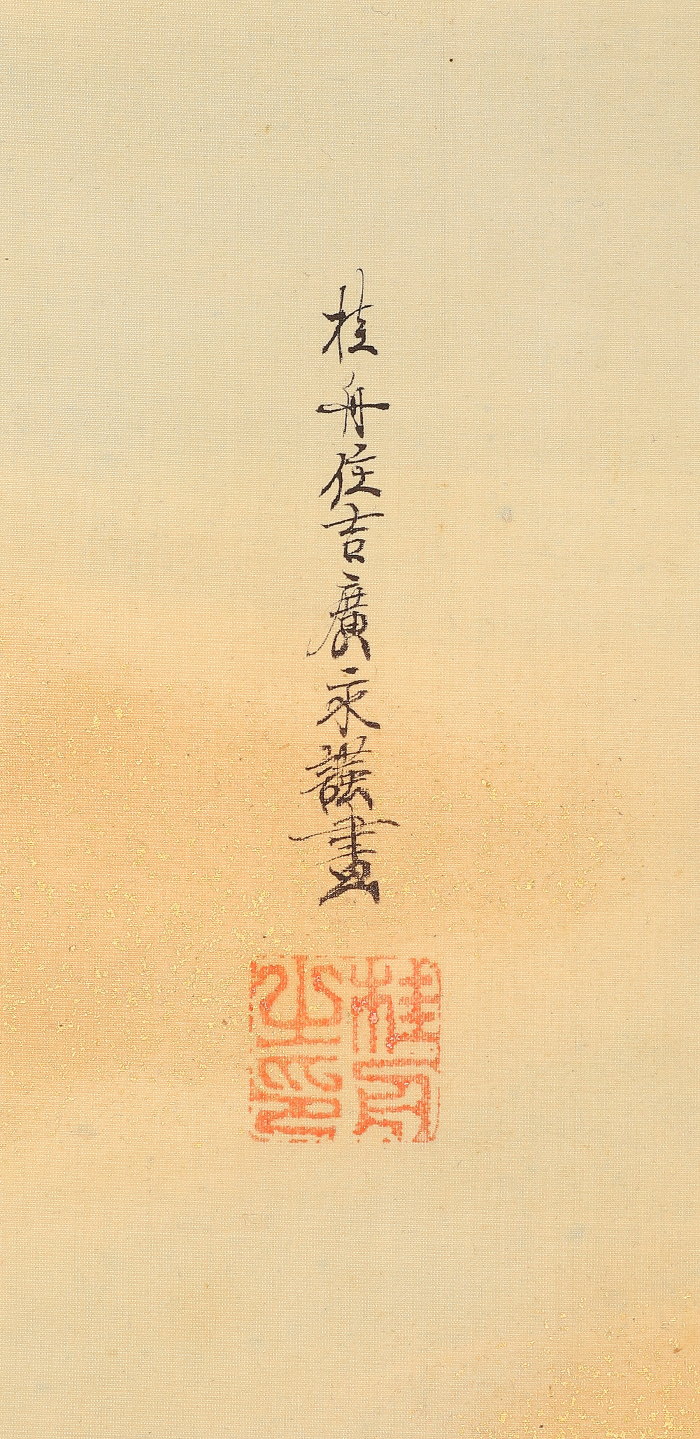 桂舟住吉廣永謹畫
桂舟
之印